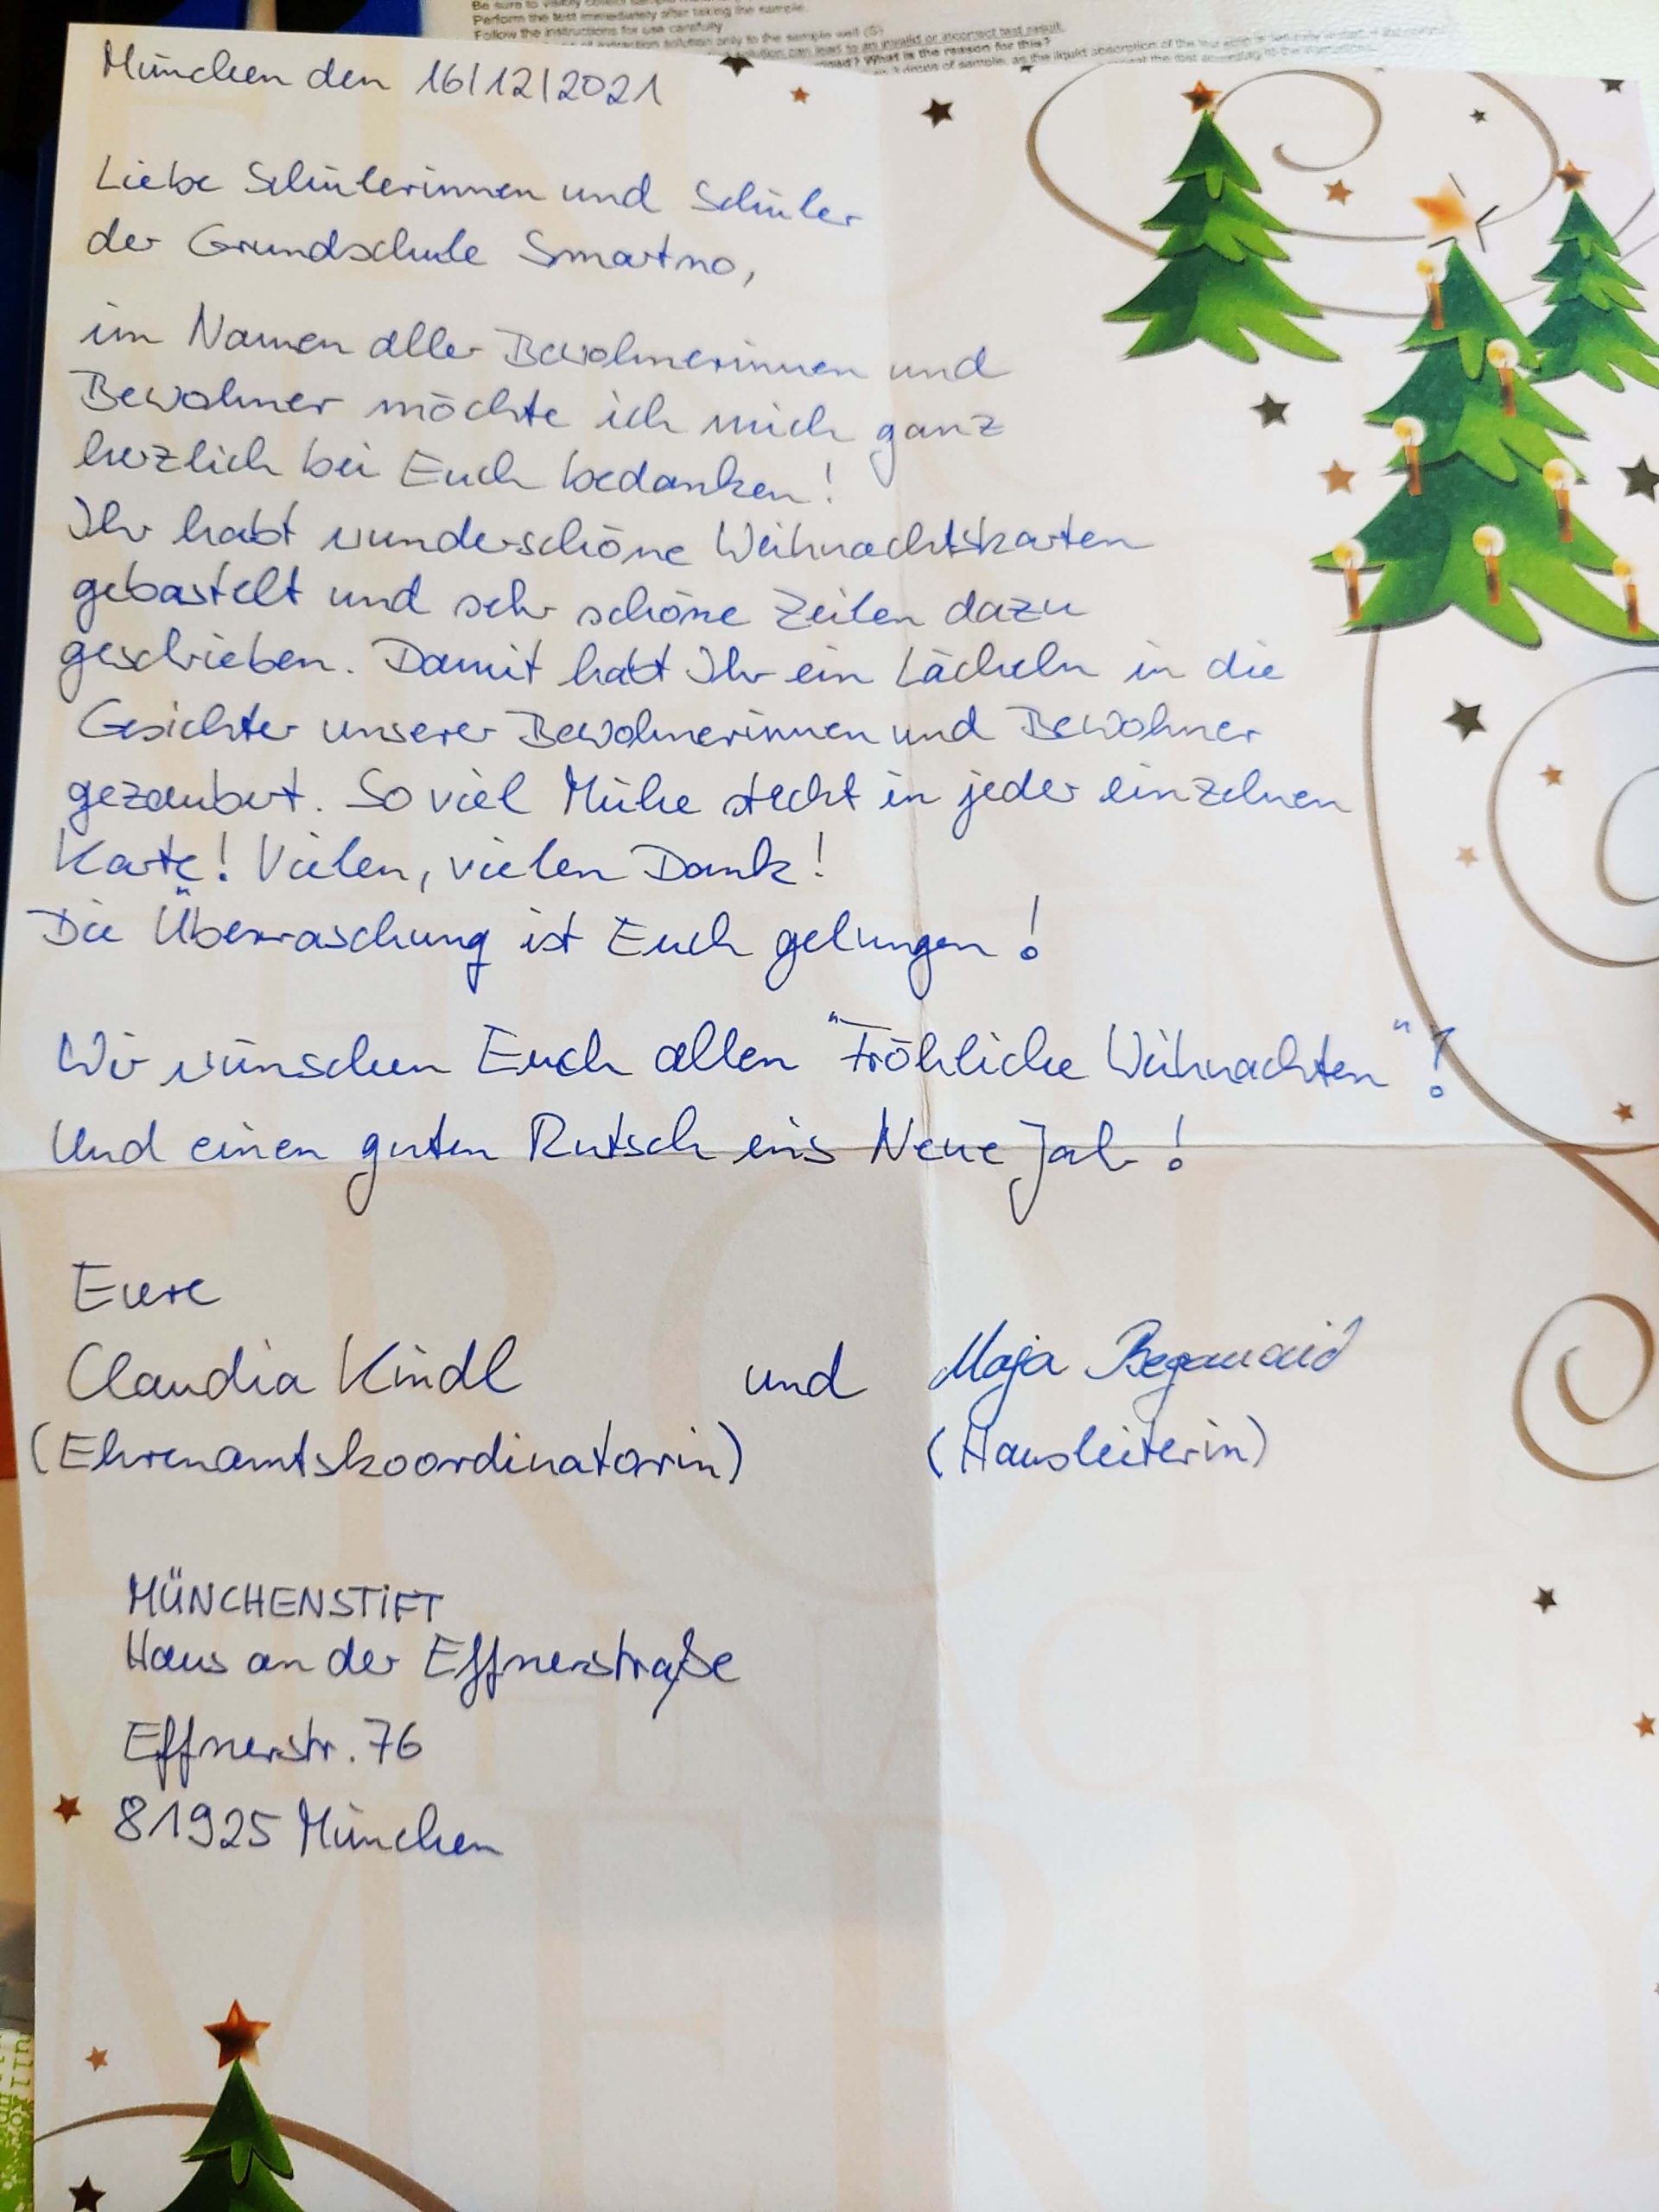 Be sure to visibly collect
Perform the test immediately after taking the sample.
Follow the instructions for use carefully
extraction solution only to the sample well (S)
solution can lead to an invalid or incorrect test result.
What is the reason for this?
drops of sample, as the liquid absorption of the
München den 16/12/2021
Liebe Schülerinnen und Schüler
der Grundschule Smartno,
im Namen aller Bewohnerinnen und
Bewohner möchte ich mich ganz
herzlich bei Euch bedanken!
Ihr habt wunderschöne Weihnachtskarten
gebastelt und sehr schöne Zeilen dazu
geschrieben. Damit habt Ihr ein Lächeln in die
Gesichter unserer Bewohnerinnen und Bewohner
gezaubert. So viel Mühe steckt in jeder einzelnen
Karte! Vielen, vielen Dank!
Die Überraschung ist Euch gelungen!
Wir wünschen Euch allen "Fröhliche Weihnachten"!
Und einen guten Rutsch ins Neue Jahr!
Eure
Claudia Kindl und Maja
(Ehrenamtskoordinatorin) (Hausleiterin)
MÜNCHENSTIFT
Haus an der Effnerstraße
Effnerstr. 76
81925 München
FROH
WEIHNACHTE
MERRY